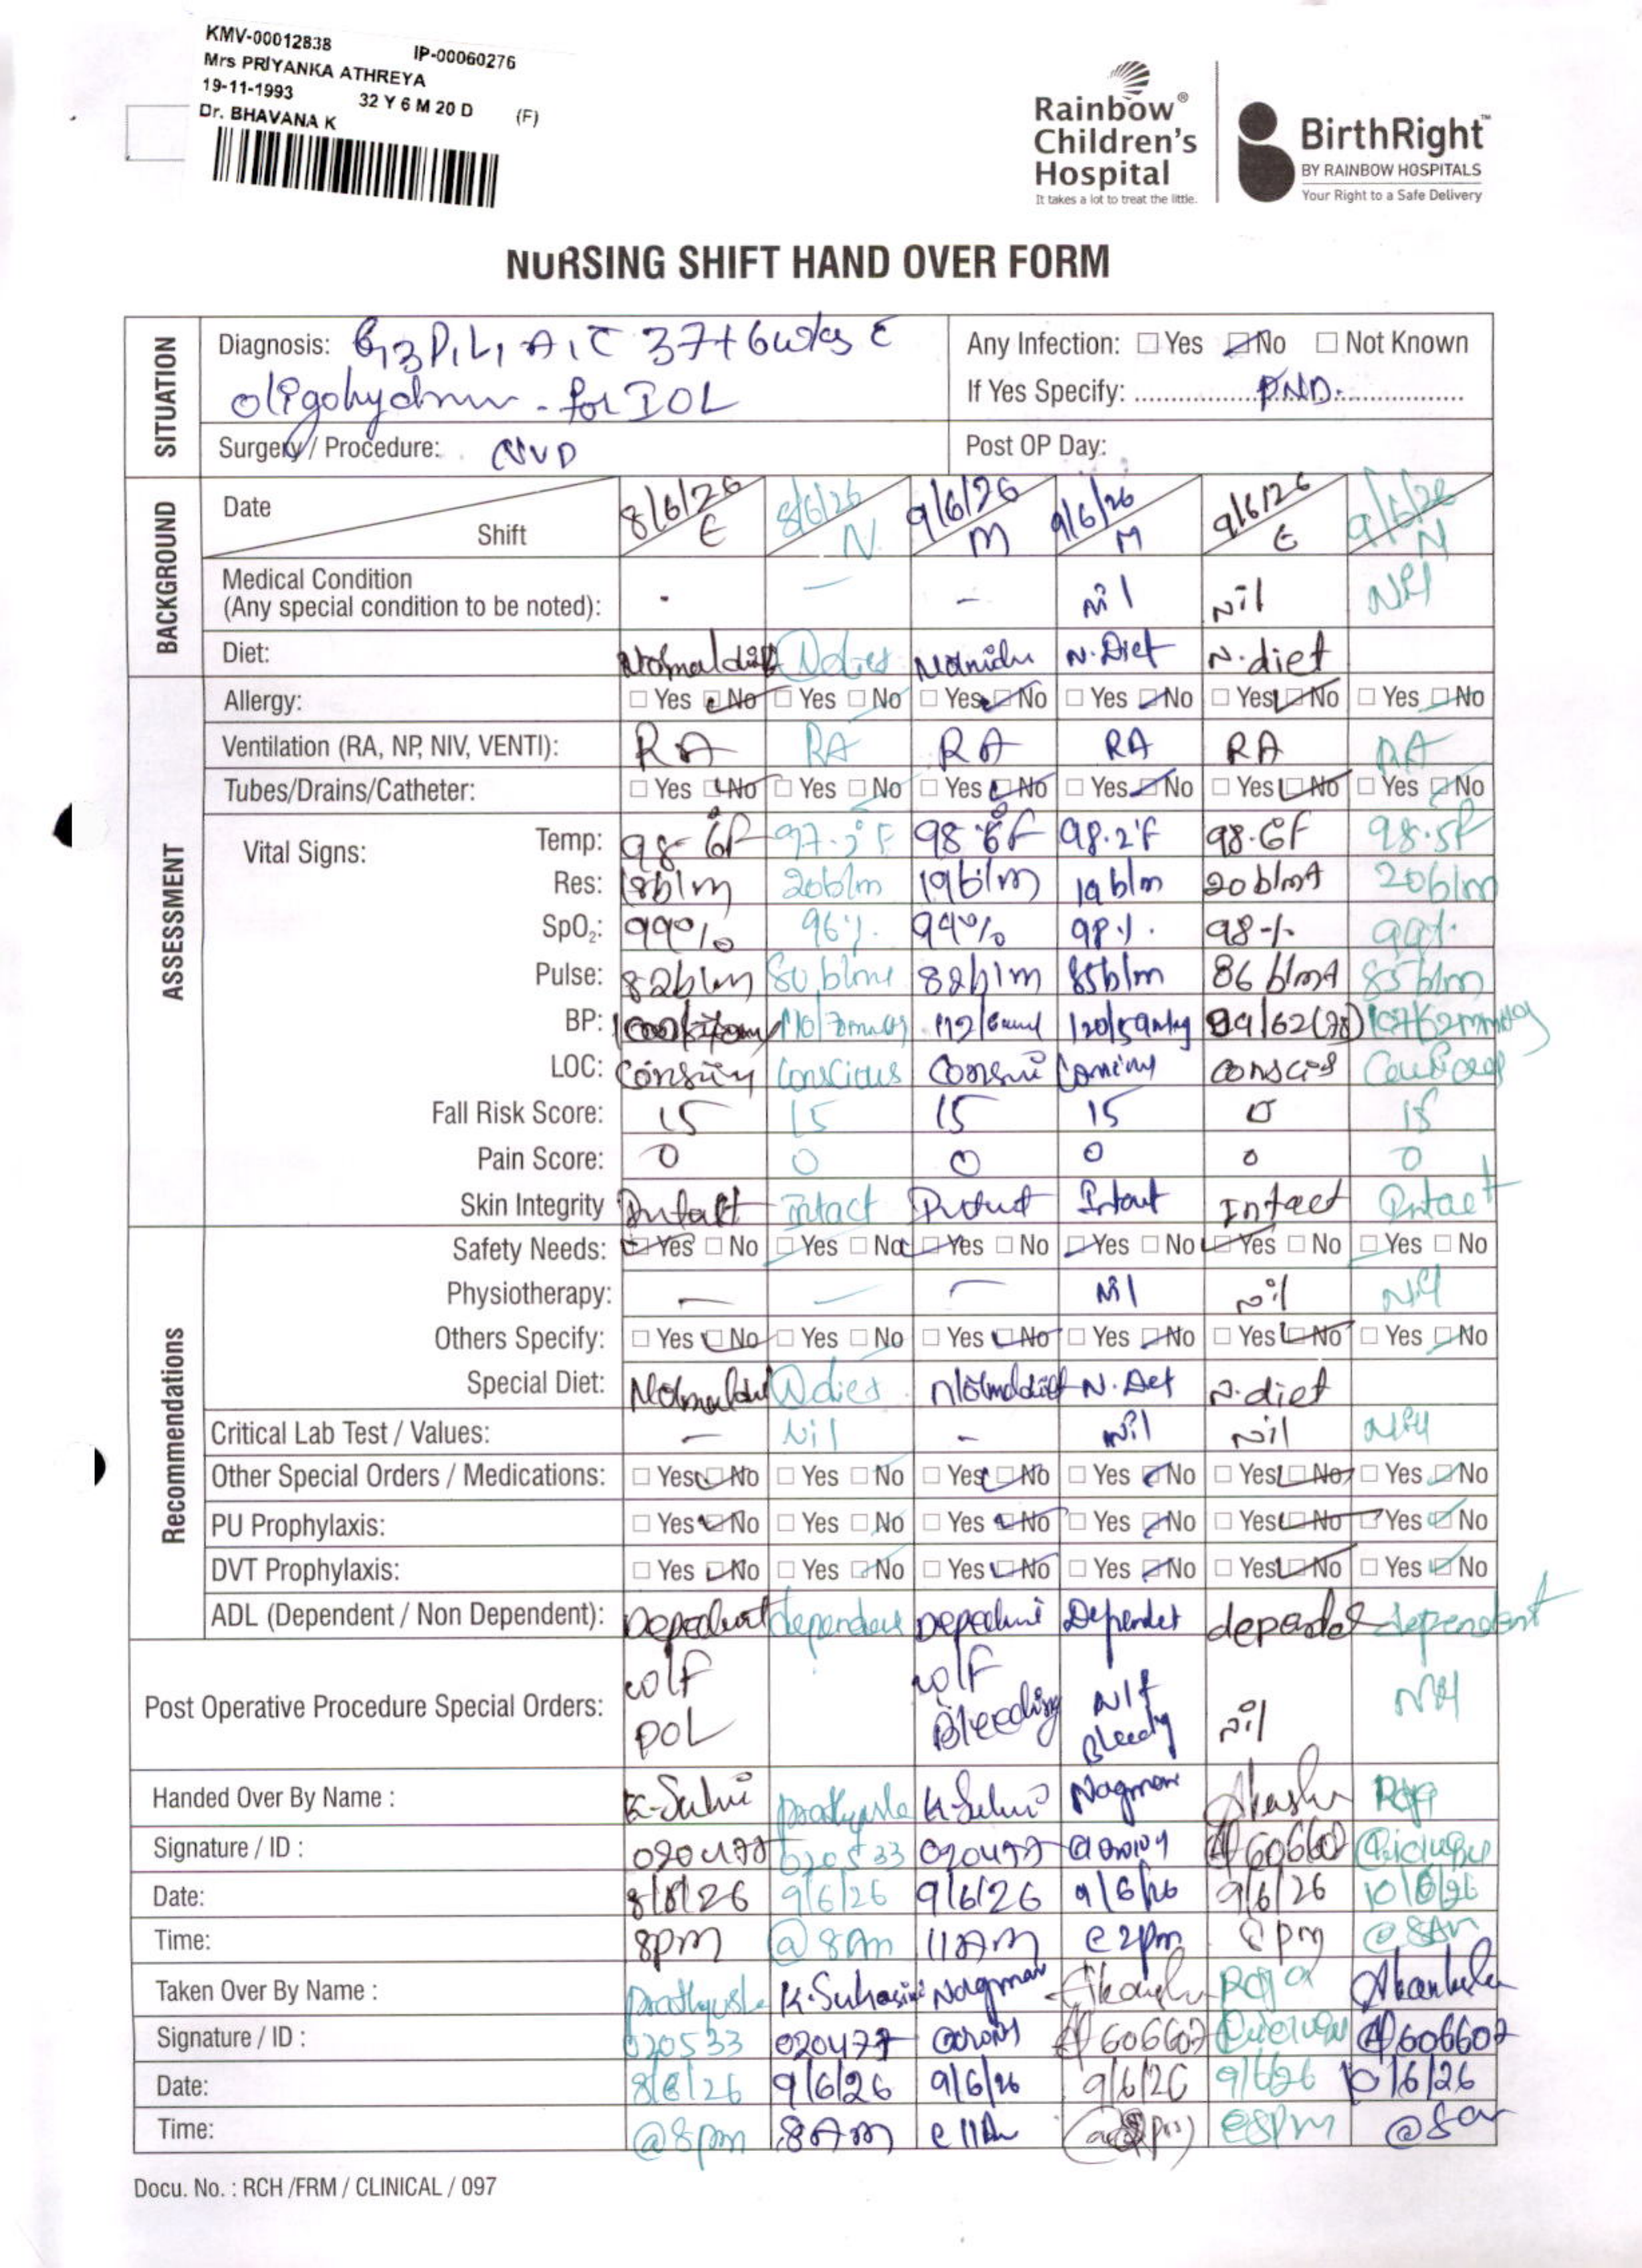 KMV-00012838 IP-00060276
Mrs PRIYANKA ATHREYA
19-11-1993 32 Y 6 M 20 D (F)
Dr. BHAVANA K
Rainbow®
Children's
Hospital
It takes a lot to treat the little.
BirthRight™
BY RAINBOW HOSPITALS
Your Right to a Safe Delivery
NURSING SHIFT HAND OVER FORM
SITUATION
Diagnosis: G3P1L1A1 C 37+6wks C
oligohydramn - for IOL
Any Infection: Yes No Not Known
If Yes Specify: PND.
Surgery / Procedure: NVD
Post OP Day:
BACKGROUND
Date Shift 8/6/26 E 8/6/26 N 9/6/26 M 9/6/26 M 9/6/26 E 9/6/26 N
Medical Condition
(Any special condition to be noted): - - - Nil Nil Nil
Diet: Normal diet N diet N. Diet N. diet
ASSESSMENT
Allergy: Yes No Yes No Yes No Yes No Yes No Yes No
Ventilation (RA, NP, NIV, VENTI): RA RA RA RA RA RA
Tubes/Drains/Catheter: Yes No Yes No Yes No Yes No Yes No Yes No
Vital Signs:
Temp: 98.6F 97.2°F 98.6F 98.2°F 98.6F 98.5F
Res: 18b/m 20b/m 19b/m 19b/m 20b/mt 20b/m
SpO2: 99% 96% 99% 98% 98% 99%
Pulse: 82b/m 80 b/mt 82b/m 85b/m 86 b/mt 85b/m
BP: 110/70mmHg 120/59mmHg 99/62(78) 107/62mmHg
LOC: Conscious
Fall Risk Score: 15 15 15 15 15 15
Pain Score: 0 0 0 0 0 0
Skin Integrity Intact Intact Intact Intact Intact Intact
Recommendations
Safety Needs: Yes No Yes No Yes No Yes No Yes No Yes No
Physiotherapy: - - - Nil Nil Nil
Others Specify: Yes No Yes No Yes No Yes No Yes No Yes No
Special Diet: Normal diet N diet Normal diet N. Diet N. diet
Critical Lab Test / Values: - Nil - Nil Nil Nil
Other Special Orders / Medications: Yes No Yes No Yes No Yes No Yes No Yes No
PU Prophylaxis: Yes No Yes No Yes No Yes No Yes No Yes No
DVT Prophylaxis: Yes No Yes No Yes No Yes No Yes No Yes No
ADL (Dependent / Non Dependent): Dependent dependent Dependent Dependet dependent
Post Operative Procedure Special Orders: Bleeding Nil
Handed Over By Name : Prathyusha Akansha Roja
Signature / ID : 020477 020533 020477 606607
Date: 8/6/26 9/6/26 9/6/26 9/6/26 9/6/26 10/6/26
Time: 8pm @ 8Am 11AM @ 2pm 8pm @ 8Am
Taken Over By Name : Prathyusha K. Suhasini Akansha Roja Akanksha
Signature / ID : 020533 020477 606607 606607
Date: 8/6/26 9/6/26 9/6/26 9/6/26 9/6/26 10/6/26
Time: @ 8pm 8AM @ 11A @8pm @ 8am
Docu. No. : RCH /FRM / CLINICAL / 097